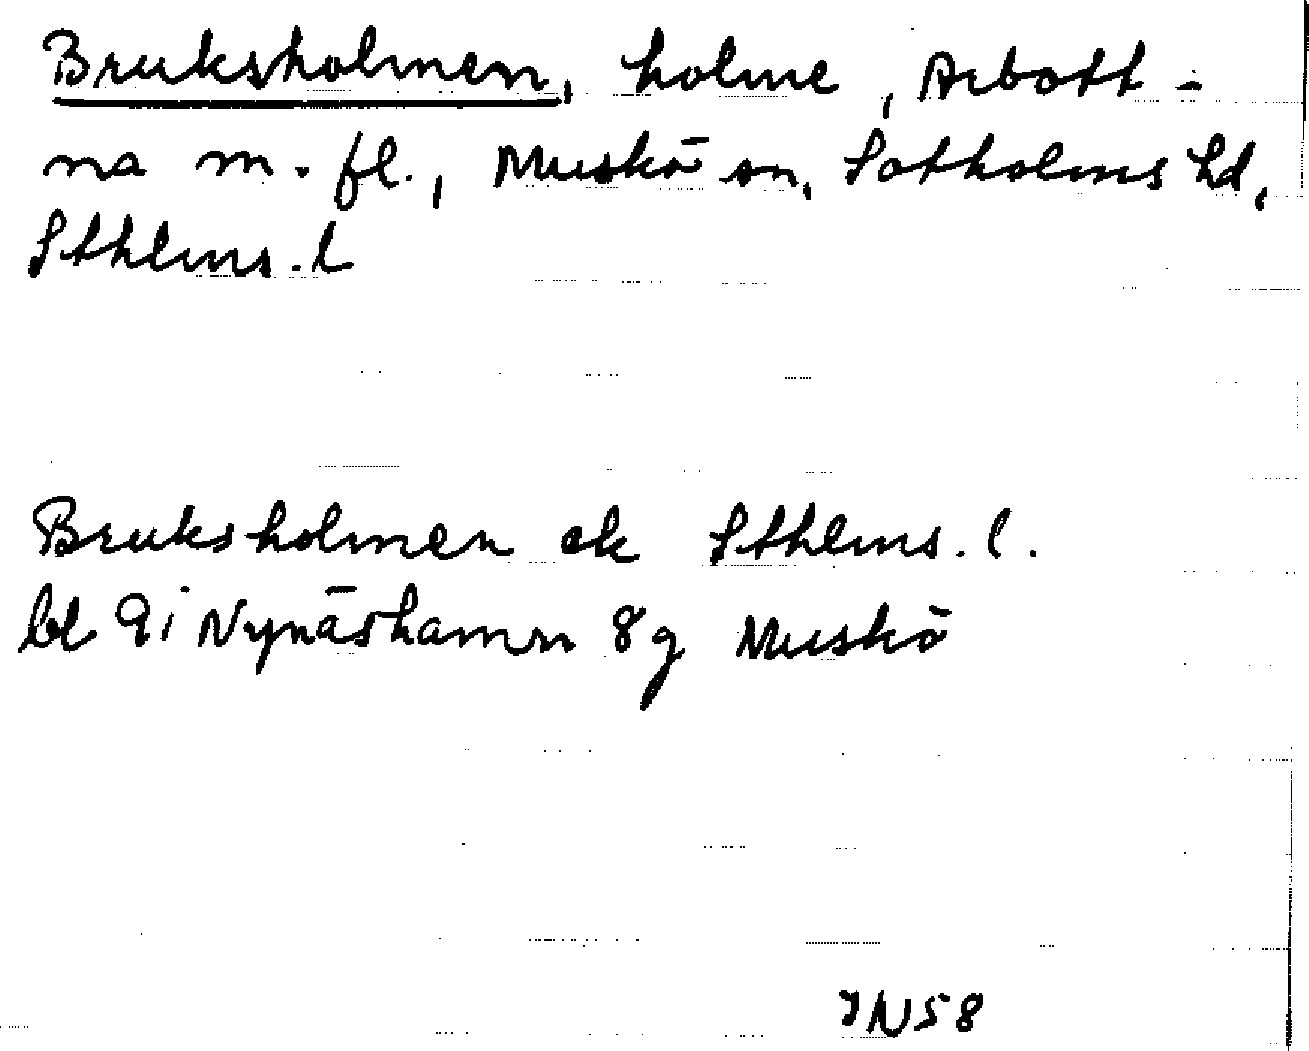 Bruksholmen, holme, Arbott-
na m.fl., Muskö sn, Sotholms hd,
Sthlms.l
Bruksholmen ek Sthlms.l.
bl 9i Nynäshamn 8g Muskö
JN58